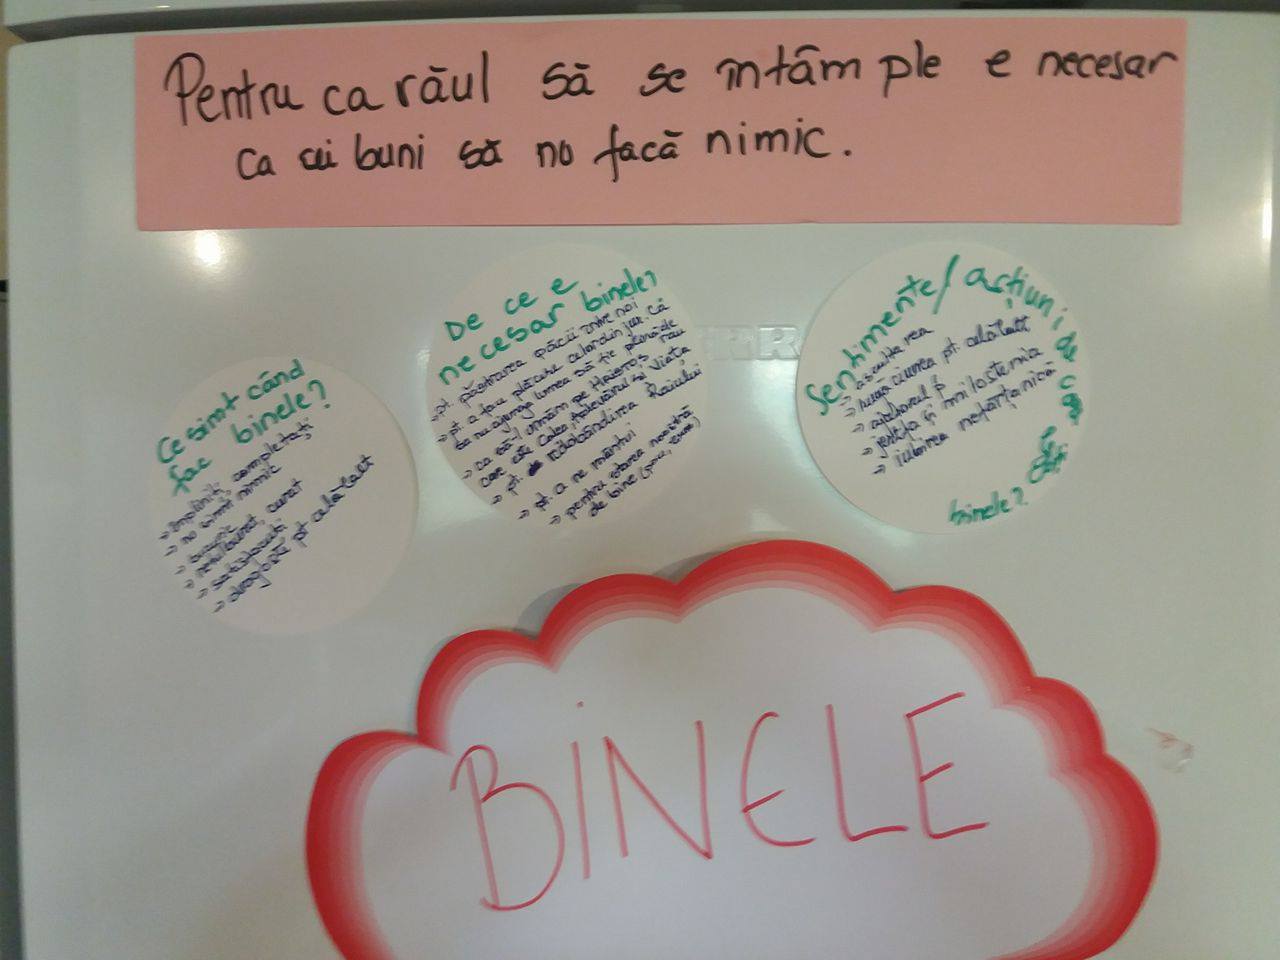 Pentru ca răul să se întâmple e necesar
ca cei buni să nu facă nimic.
Ce simt când
fac binele?
→ împliniți, completați
→ nu simt nimic
→ bucurie
→ mulțumit, curat
→ satisfacuți
→ dragoste pt celălalt
De ce e
necesar binele?
→ pt. păstrarea păcii între noi
→ pt. a face plăcere celor din jur. Ca
sa nu ajunge lumea să fie plină de rău
→ ca să-L urmăm pe Hristos
care este Calea, Adevărul și Viața
→ pt. redobândirea Raiului
→ pt. a ne mântui
→ pentru starea noastră
de bine
Sentimente/acțiuni
binele?
→ ascultarea
→ rugăciunea pt. celălalt
→ ajutorul
→ jertfa și milostenia
→ iubirea nefățarnică
BINELE